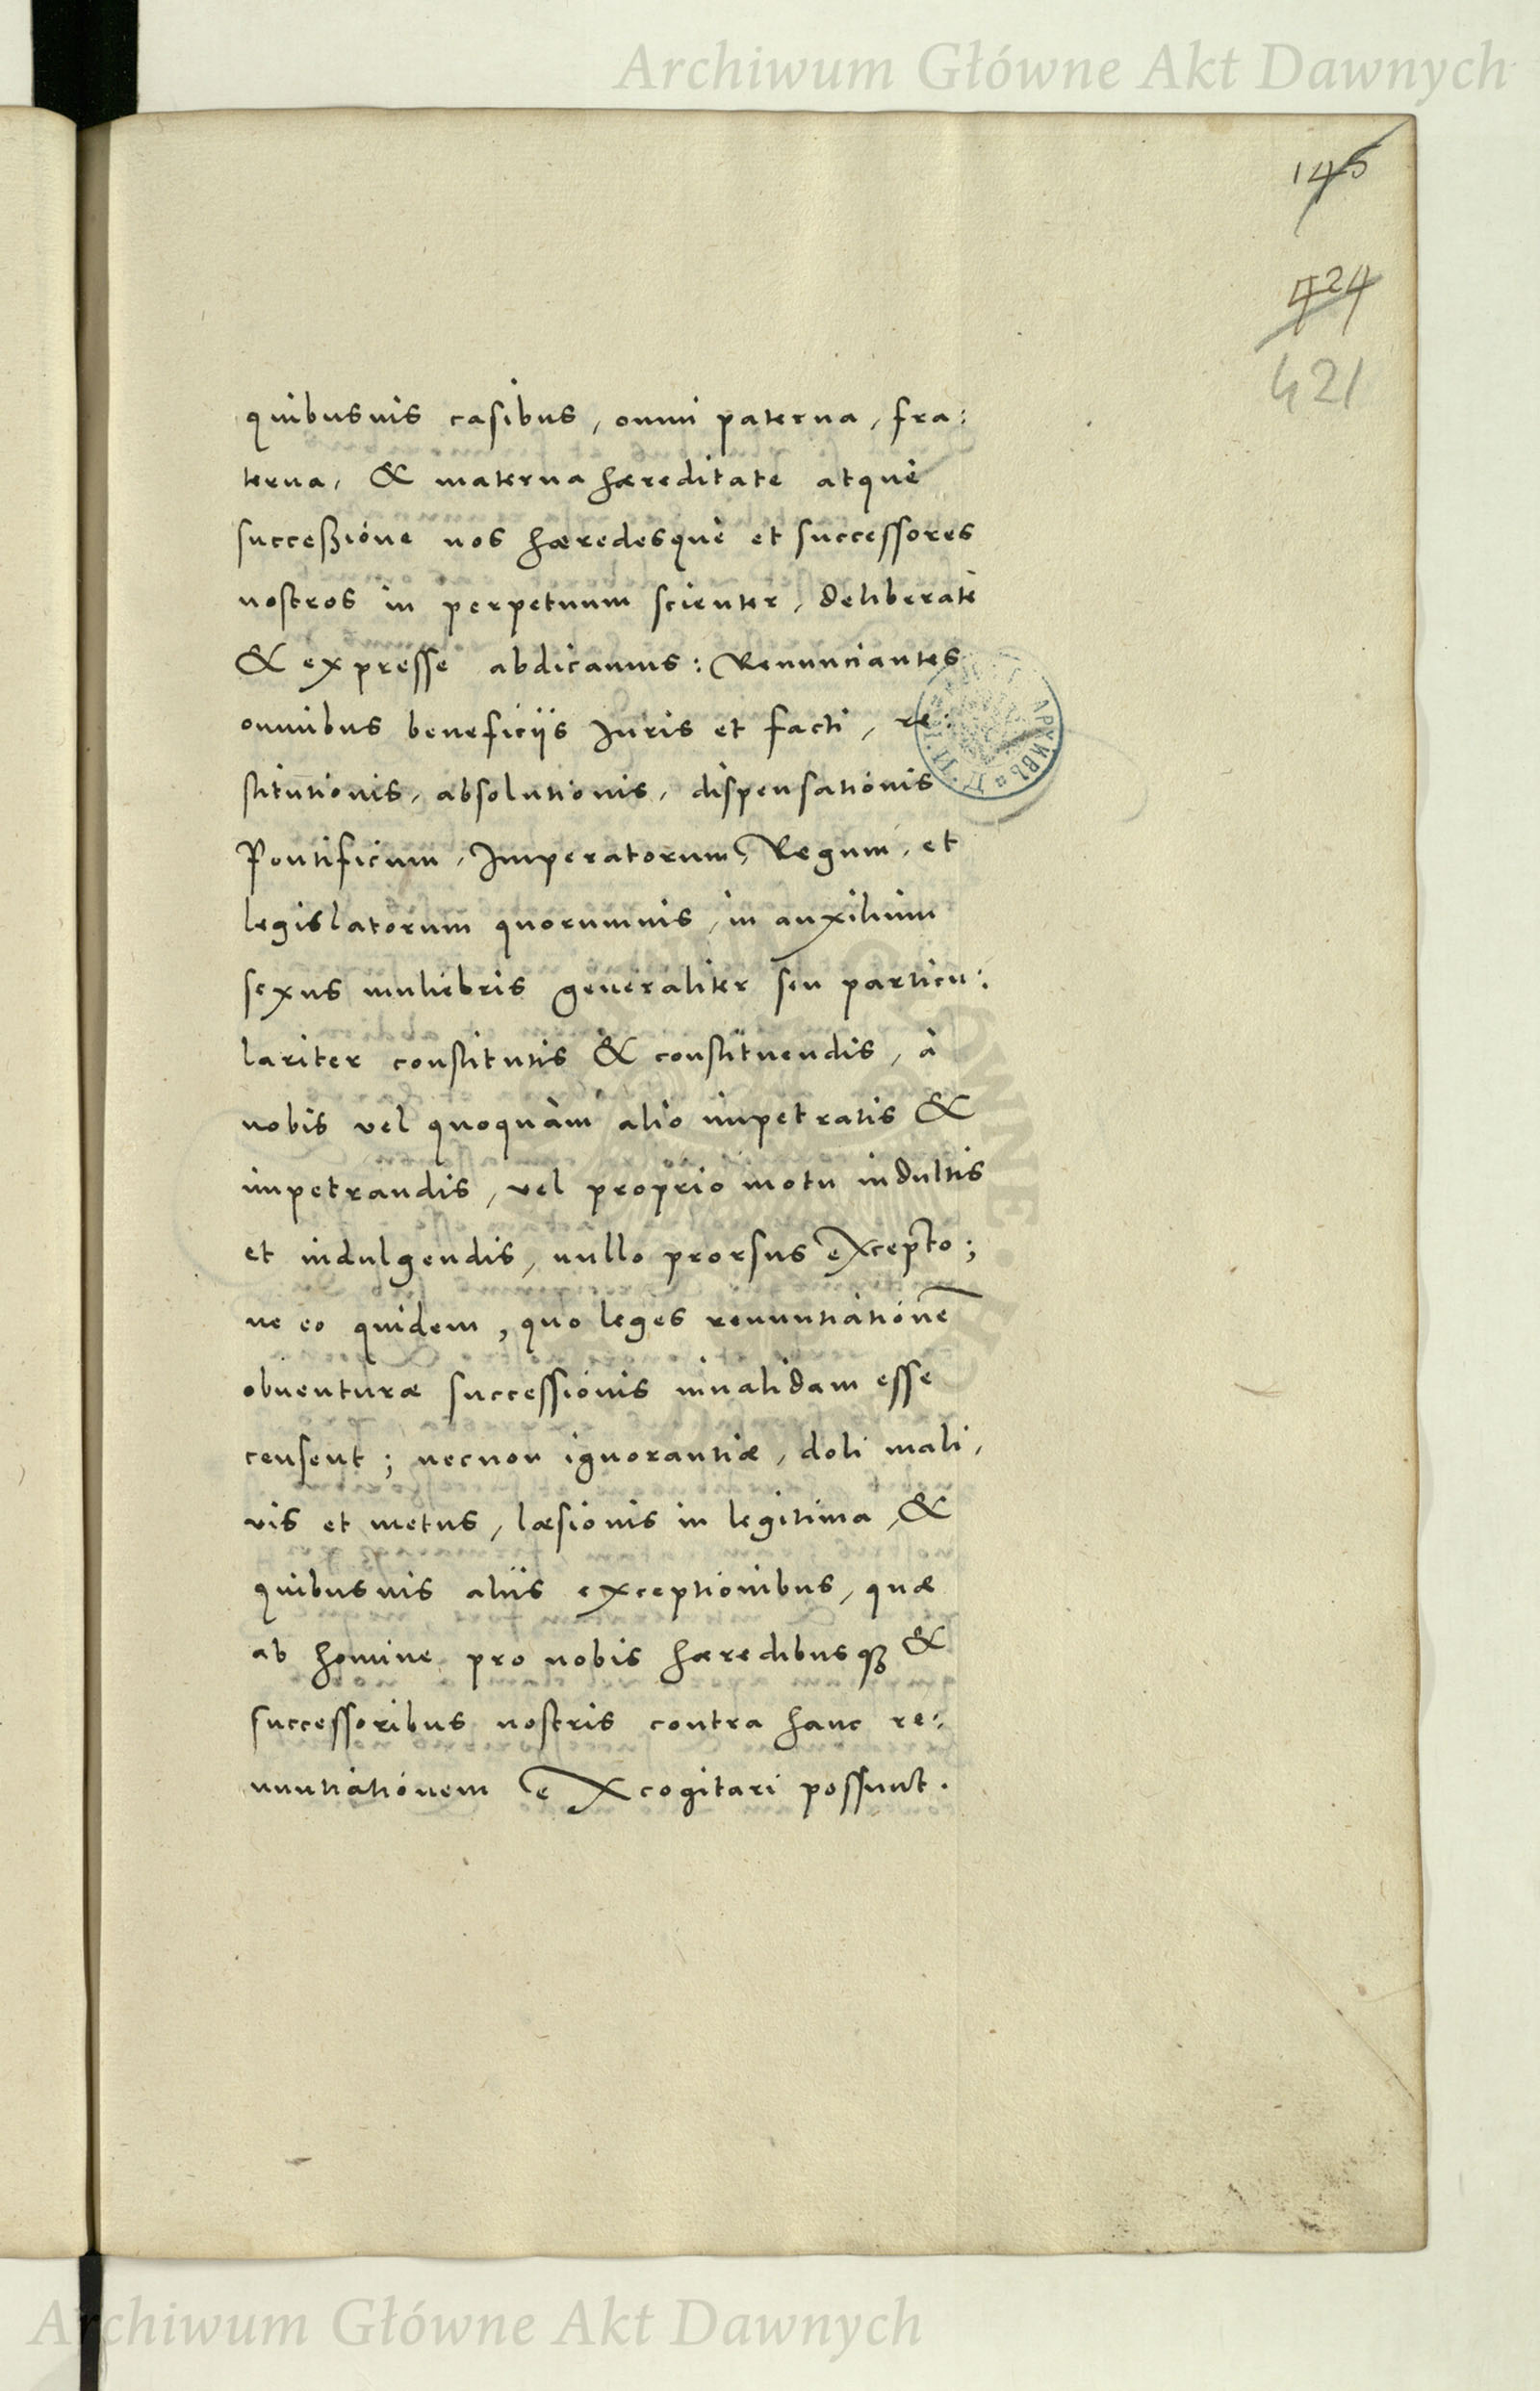 Archiwum Główne Akt Dawnych
145
424
421
quibusuis casibus, omni paterna, fra:
terna, & materna hæreditate atquè
succeßióne nos hæredesquè et successores
nostros in perpetuum scienter, deliberatè
& expresse abdicamus: Renunciantes
omnibus beneficijs Juris et facti, re:
stitutionis, absolutionis, dispensationis
Pontificum, Imperatorum, Regum, et
legislatorum quorumuis, in auxilium
sexus muliebris generaliter seu particu:
lariter constitutis & constituendis, à
nobis vel quoquàm alio impetratis &
impetrandis, vel proprio motu indultis
et indulgendis, nullo prorsus excepto;
ne eo quidem, quo leges renuntiationē
obuenturæ successionis inualidam esse
censent; necnon ignorantiæ, doli mali,
vis et metus, læsionis in legitima, &
quibusuis alijs exceptionibus, quæ
ab homine pro nobis hæredibusqȝ &
successoribus nostris contra hanc re:
nuntiationem excogitari possunt.
Archiwum Główne Akt Dawnych